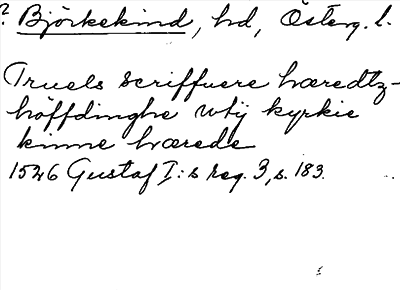 ? Björkekind, hd, Österg. l.
Truels scriffuere hæredtz-
höffdinghe utij kyrkie
kinne hærede
1526 Gustaf I:s reg. 3, s. 183.